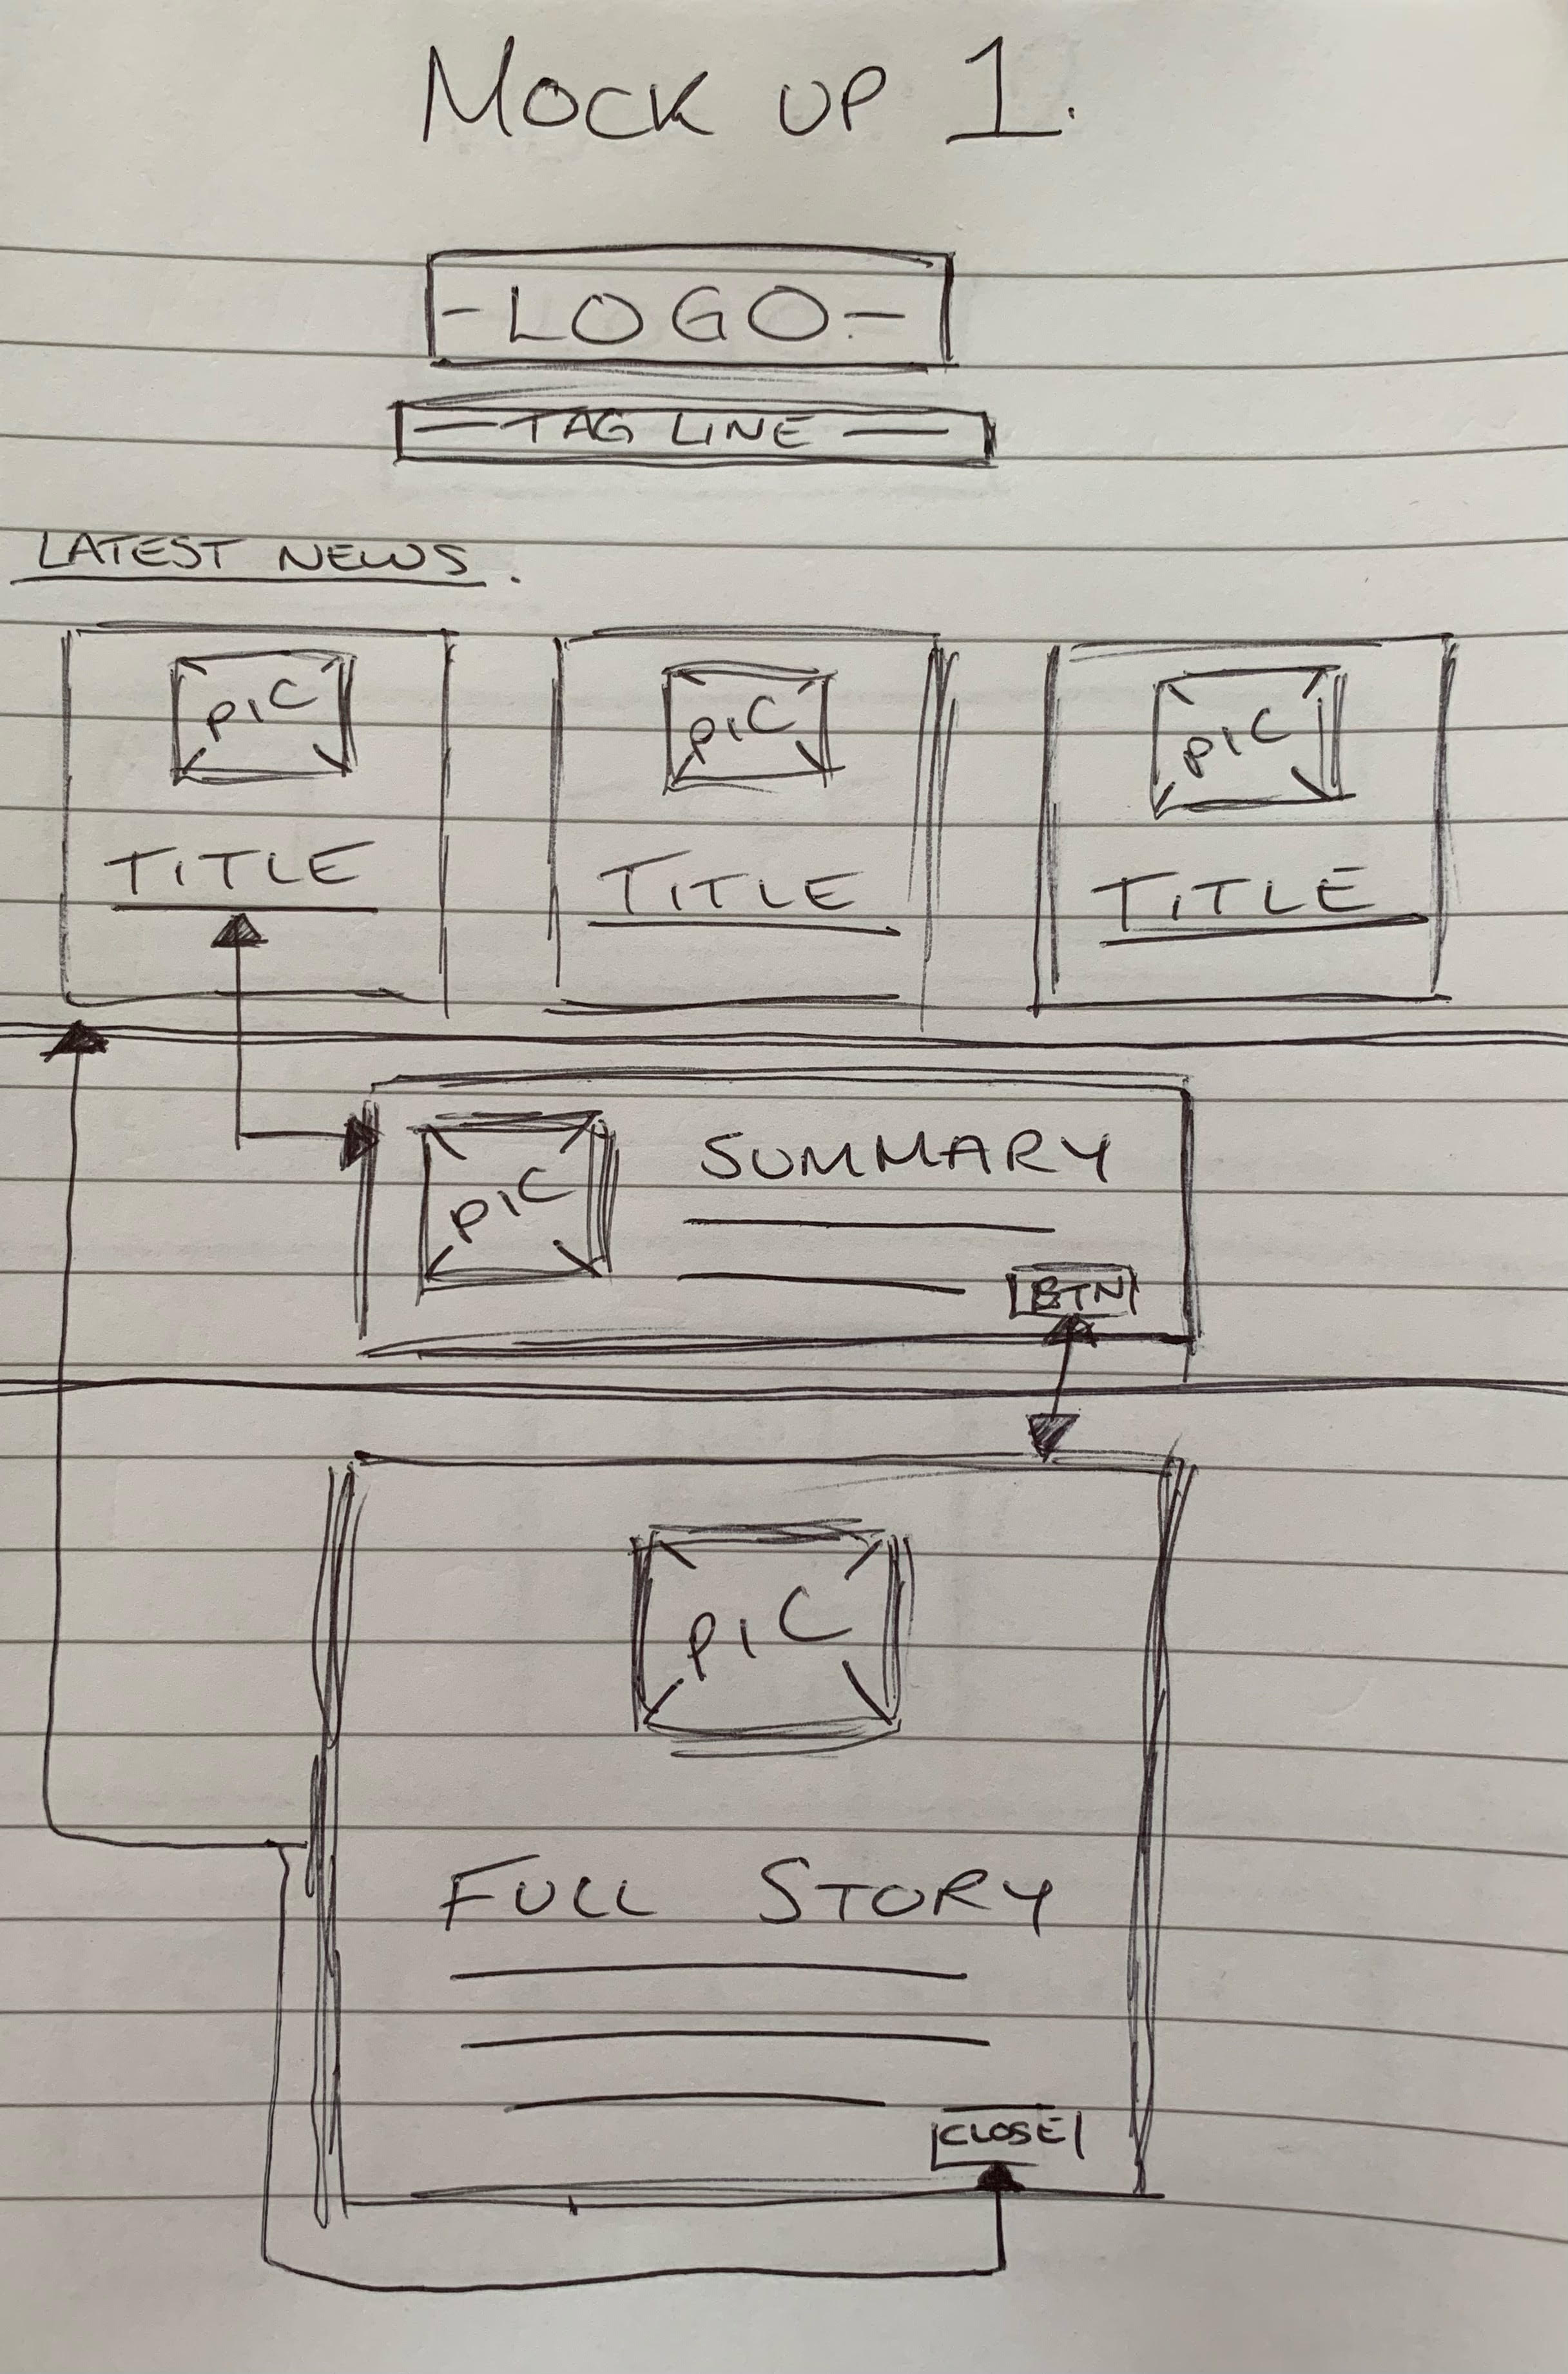 MOCK UP 1.
-LOGO-
—TAG LINE—
LATEST NEWS.
PIC PIC PIC
TITLE TITLE TITLE
PIC SUMMARY
BTN
PIC
FULL STORY
CLOSE